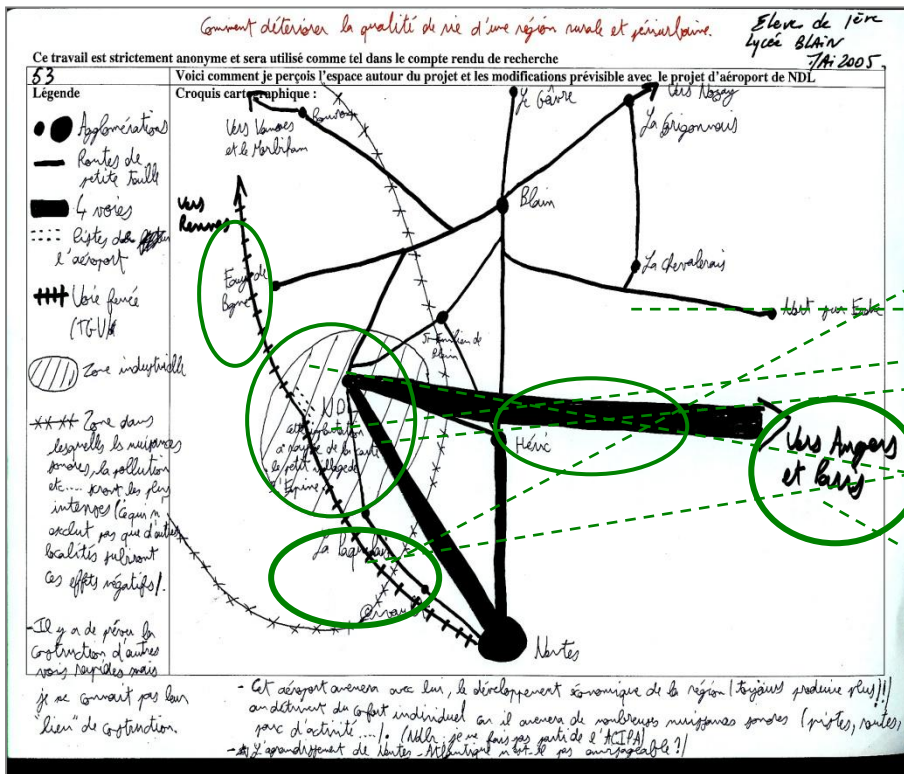 Comment détériorer la qualité de vie d'une région rurale et périurbaine.
Eleve de 1ère
Lycée BLAIN
MAi 2005
Ce travail est strictement anonyme et sera utilisé comme tel dans le compte rendu de recherche
53
Voici comment je perçois l'espace autour du projet et les modifications prévisible avec le projet d'aéroport de NDL
Légende
Agglomérations
Routes de
petite taille
4 voies
pistes de
l'aéroport
Voie ferrée
(TGV)
Zone industrielle
Zone dans
lesquelles les nuisances
sonores, la pollution
etc.... seront les plus
intenses (Ce qui n'
exclut pas que d'autres
localités subiront
ces effets négatifs).
- Il y a de prévu la
construction d'autres
voies rapides mais
je ne connait pas leur
"lien" de construction.
Croquis cartographique :
Vers Vannes
et le Morbihan
Bouvron
Le Gâvre
Vers Nozay
La Grigonnais
Blain
Vers
Rennes
Fay de
Bgne
La Chevalerais
Nort sur Erdre
St Emilien de
Blain
NDL
cette implantation
a rayée de la carte
le petit village de
l'Epine
Héric
Vers Angers
et Paris
La Paquelais
Nantes
- Cet aéroport amenera avec lui, le développement économique de la région (toujours produire plus!!)
au détriment du confort individuel car il amenera de nombreuses nuisances sonores (pistes, routes,
parc d'activité...). (Ndlr: je ne fais pas parti de l'ACIPA)
- L'agrandissement de Nantes-Atlantique n'est-il pas envisageable?